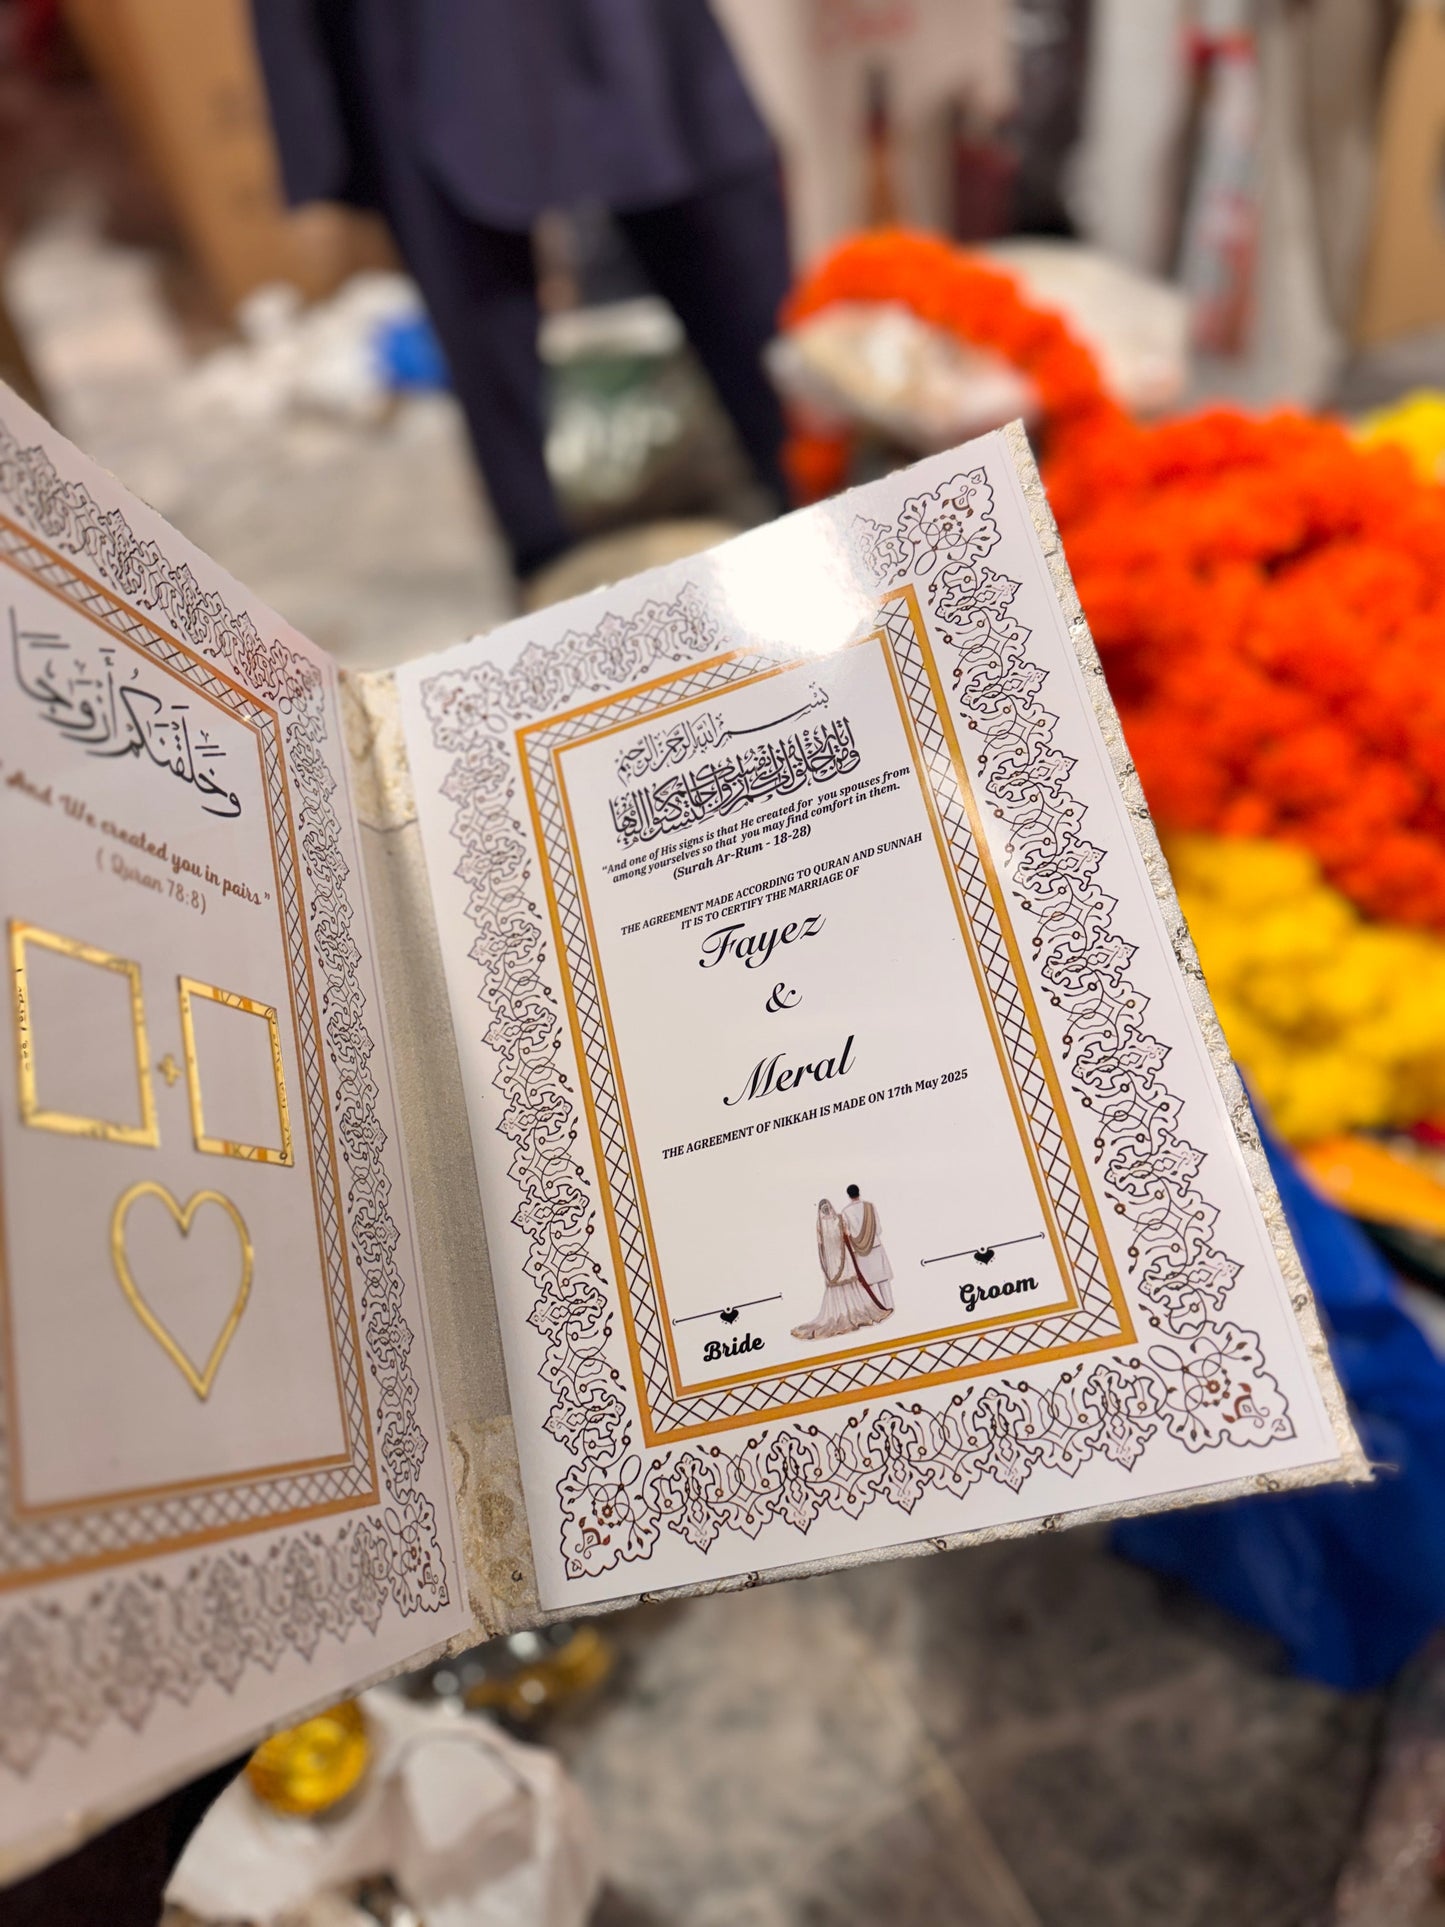 وَخَلَقْنَٰكُمْ أَزْوَٰجًا
" And We created you in pairs"
( Quran 78:8)
بِسْمِ اللهِ الرَّحْمٰنِ الرَّحِيمِ
وَمِنْ ءَايَٰتِهِ أَنْ خَلَقَ لَكُم مِّنْ أَنفُسِكُمْ أَزْوَٰجًا لِّتَسْكُنُوٓا۟ إِلَيْهَا
"And one of His signs is that He created for you spouses from
among yourselves so that you may find comfort in them.
(Surah Ar-Rum - 18-28)
THE AGREEMENT MADE ACCORDING TO QURAN AND SUNNAH
IT IS TO CERTIFY THE MARRIAGE OF
Fayez
&
Meral
THE AGREEMENT OF NIKKAH IS MADE ON 17th May 2025
Bride
Groom